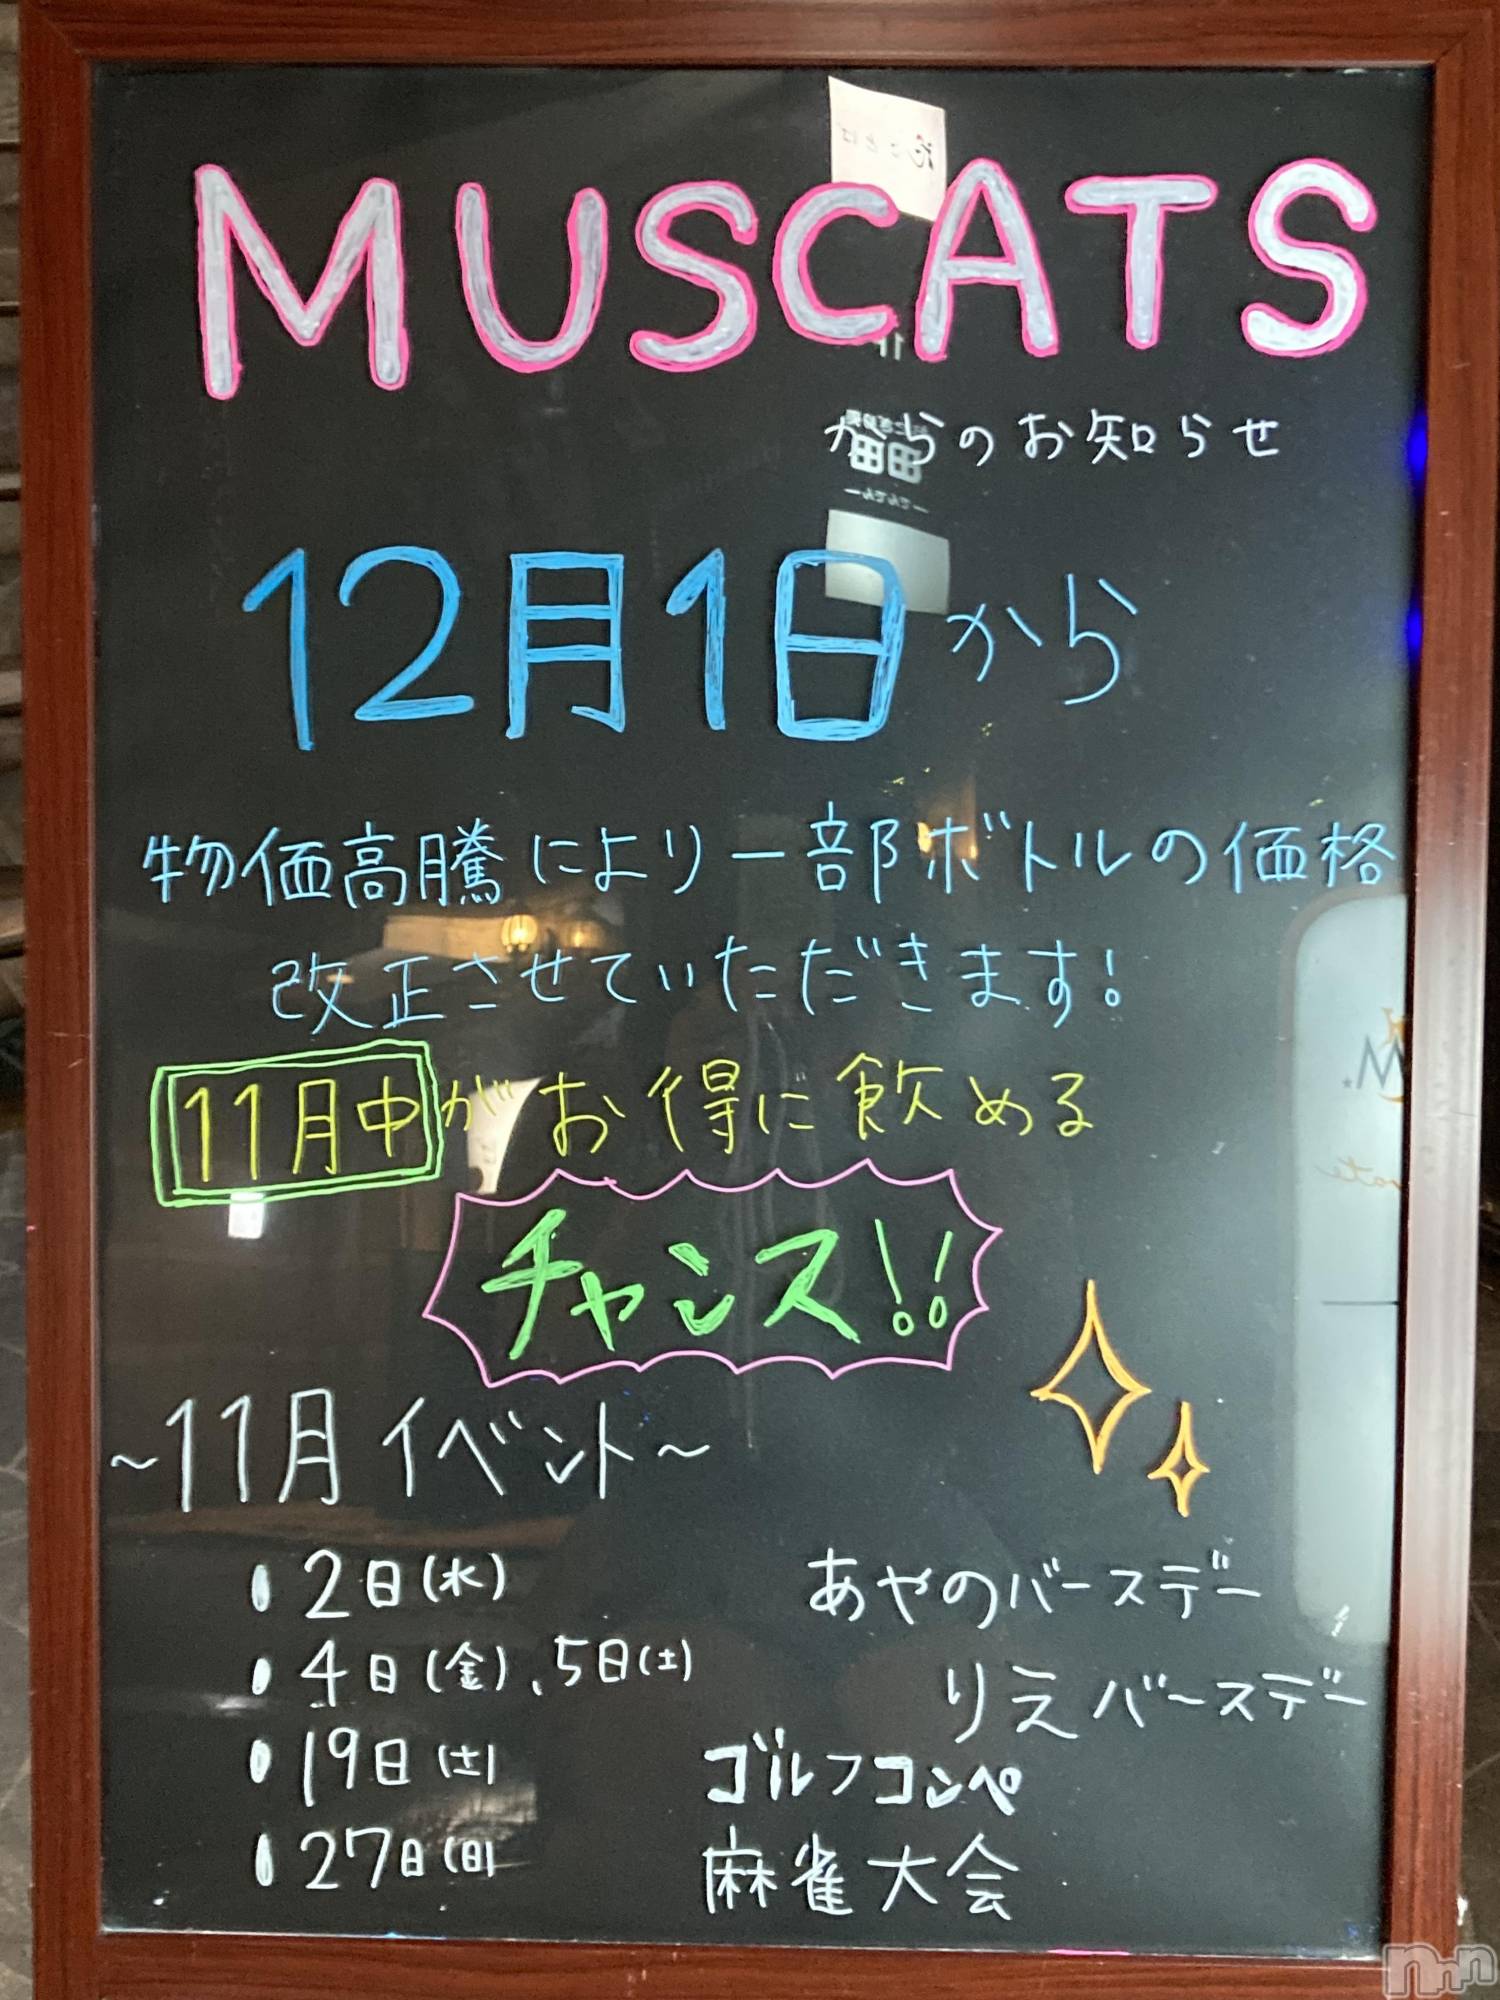 MUSCATS
からのお知らせ
12月1日から
物価高騰により一部ボトルの価格
改正させていただきます!
11月中がお得に飲める
チャンス!!
~11月イベント~
・2日(水) あやのバースデー
・4日(金)、5日(土) りえバースデー
・19日(土) ゴルフコンペ
・27日(日) 麻雀大会
nnn